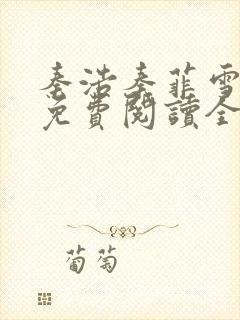 秦浩秦菲雪
免費閱讀全
葡萄